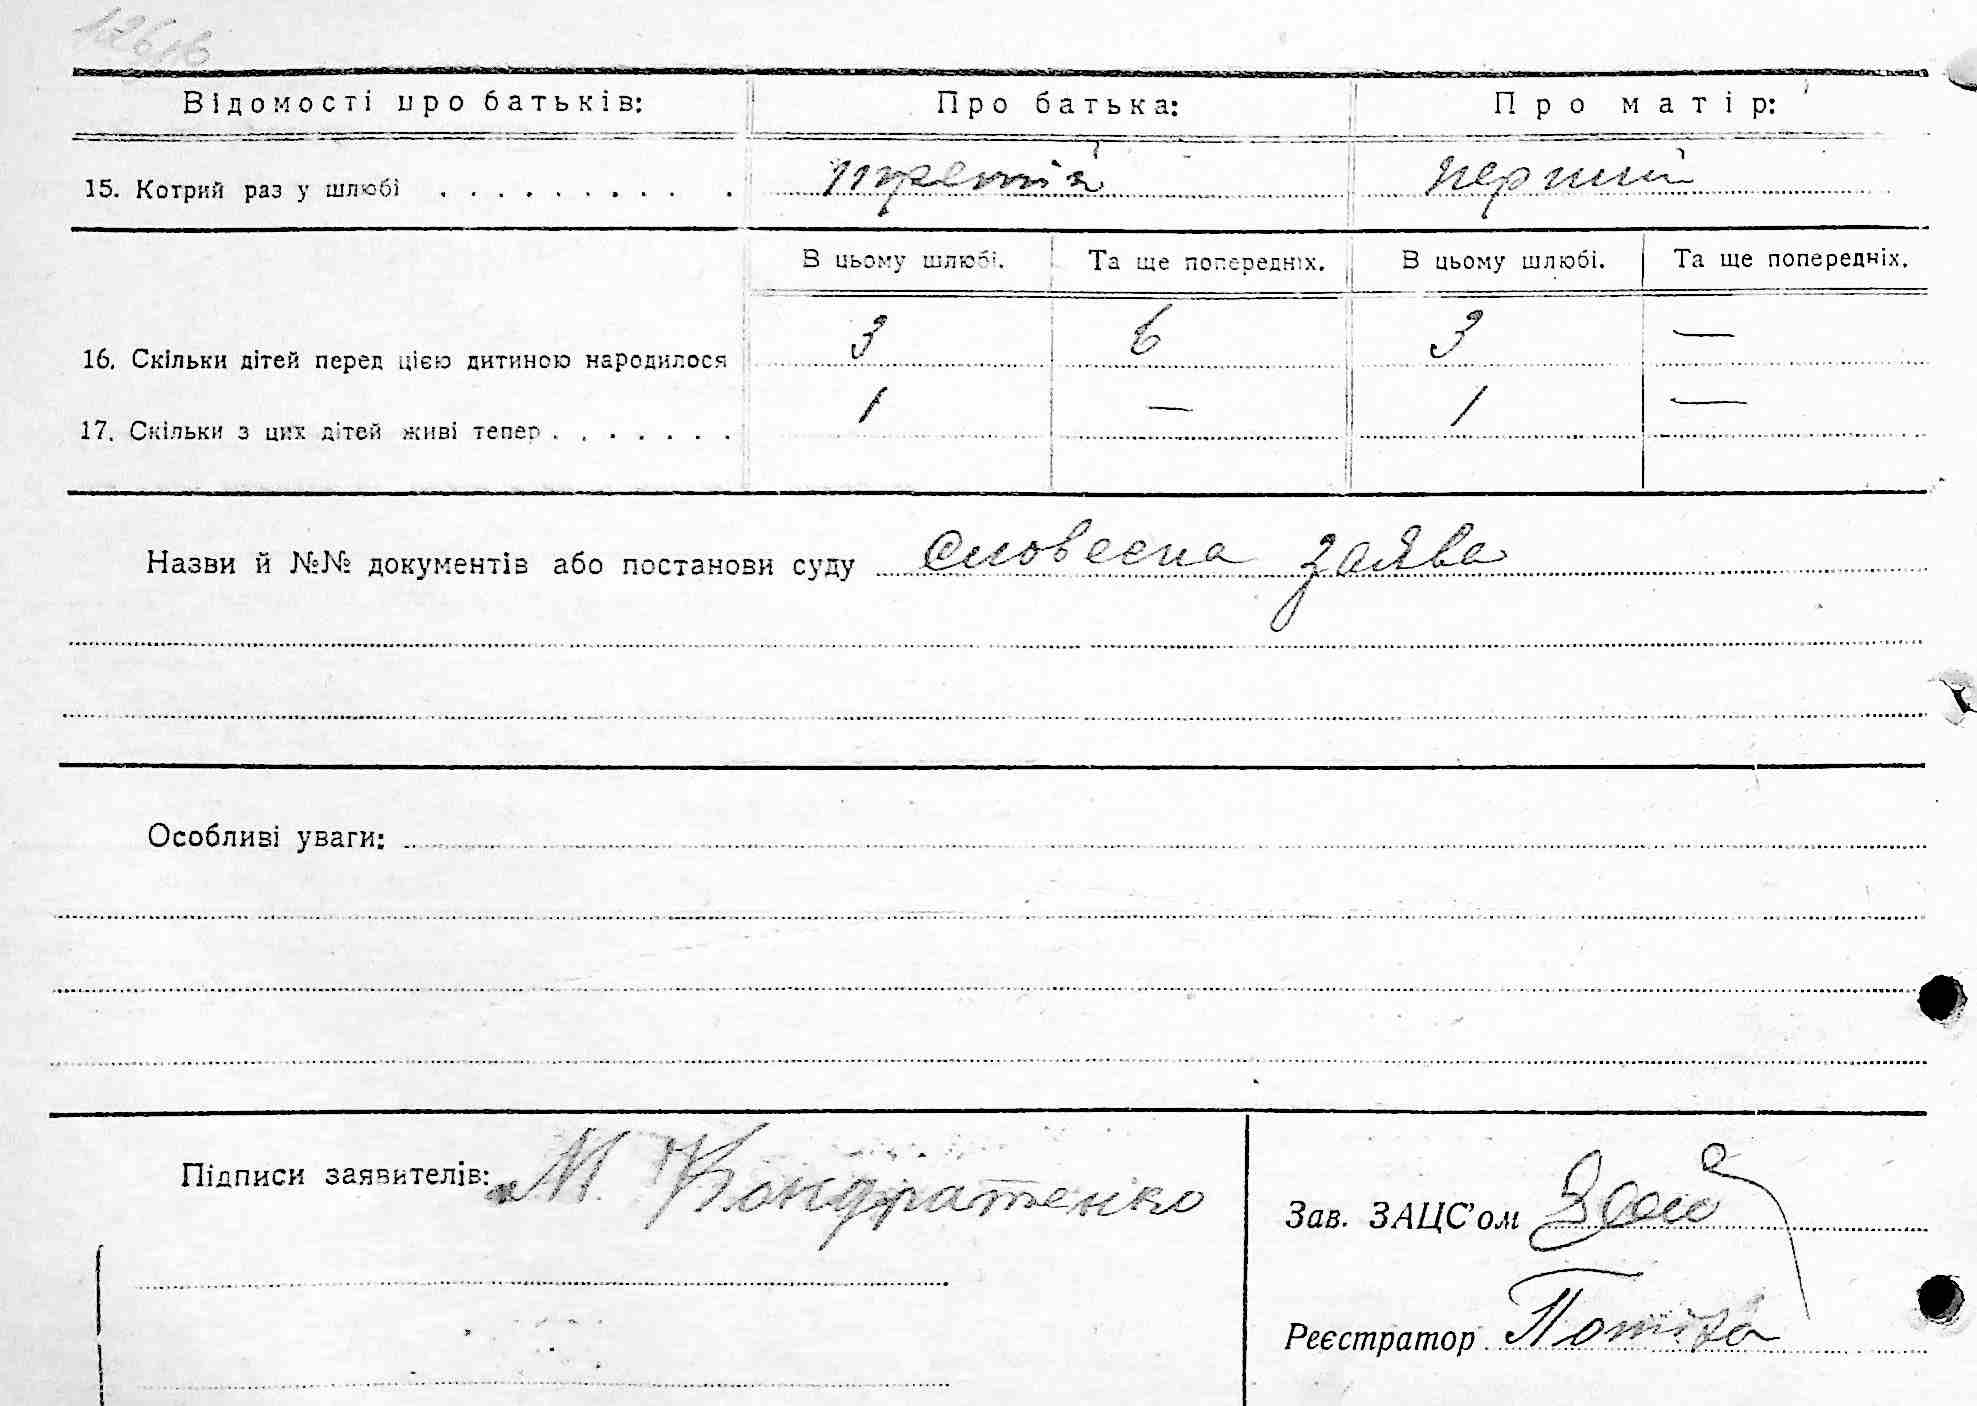 Відомості про батьків: Про батька: Про матір:
15. Котрий раз у шлюбі . . . . . . . . . . . третій перший
В цьому шлюбі. Та ще попередніх. В цьому шлюбі. Та ще попередніх.
16. Скільки дітей перед цією дитиною народилося 3 6 3 —
17. Скільки з цих дітей живі тепер . . . . . . . 1 — 1 —
Назви й №№ документів або постанови суду словесна заява
Особливі уваги:
Підписи заявителів: М. Кондратенко
Зав. ЗАЦС'ом
Реєстратор